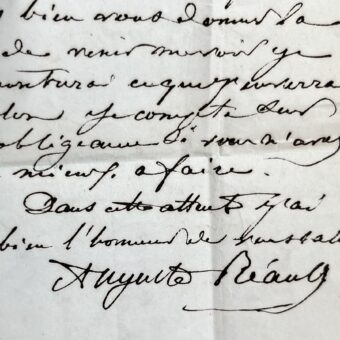 bien vous donner la
de venir me voir je
conterai ce que j'ouverra
lon je compte sur
obligeance si vous n'avez
mieux a faire.
Dans cette attente j'ai
bien l'honneur de
Auguste Réault